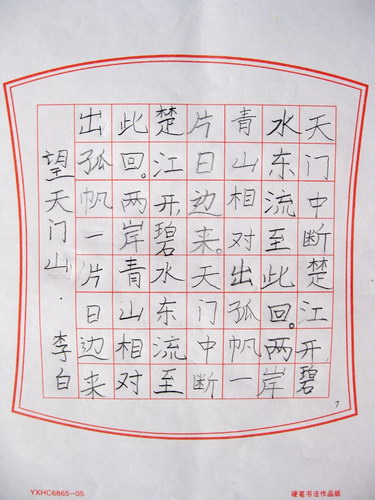 天门中断楚江开,碧
水东流至此回。两岸
青山相对出,孤帆一
片日边来。天门中断
楚江开,碧水东流至
此回。两岸青山相对
出孤帆一片日边来
望天门山·李白
7
YXHC6865-05
硬笔书法作品纸